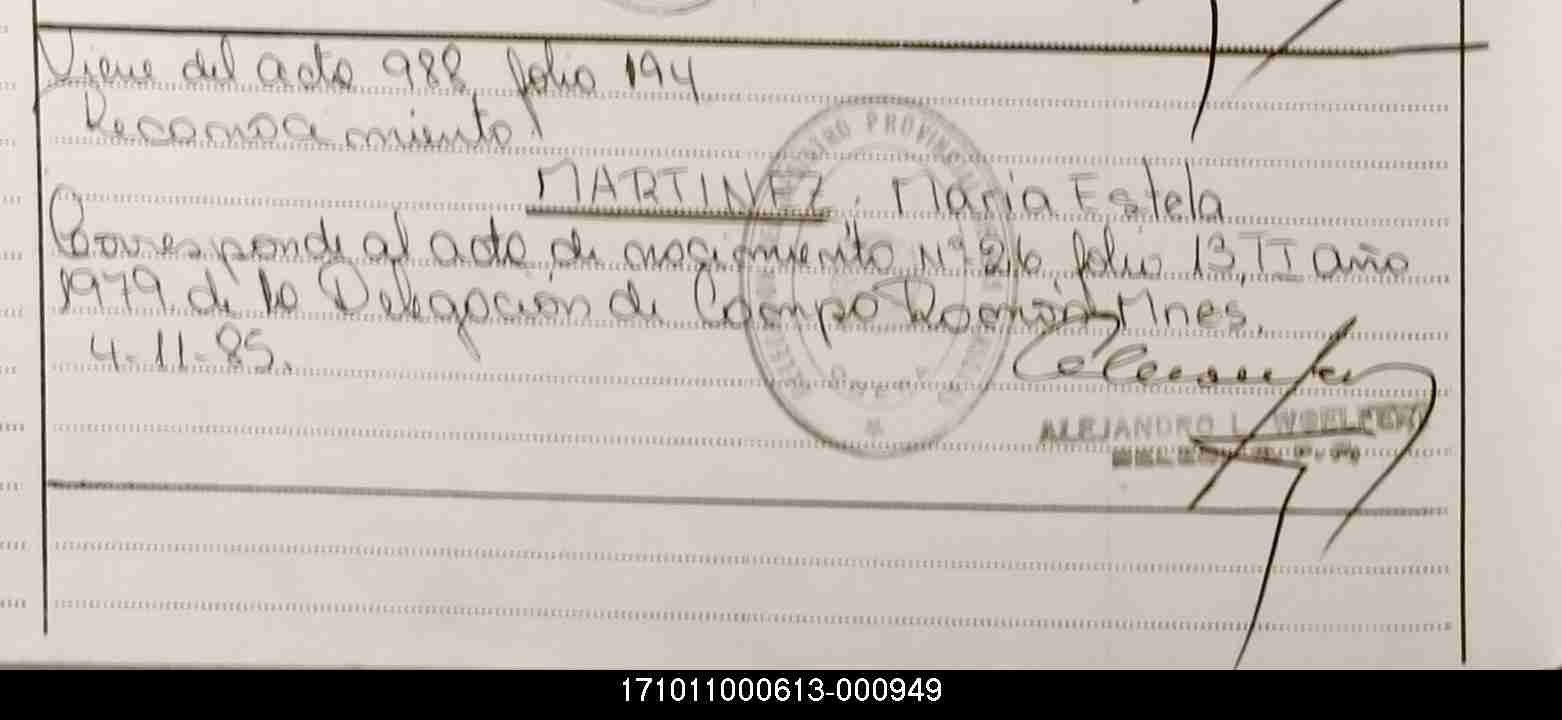 Viene del acta 988 folio 194
Reconocimiento
MARTINEZ, Maria Estela
Corresponde al acta de nacimiento Nº 26 folio 13, TI año
1979 de la Delegación de Campo Ramón Mnes.
4-11-85.
REGISTRO PROVINCIAL
ALEJANDRO L.
171011000613-000949